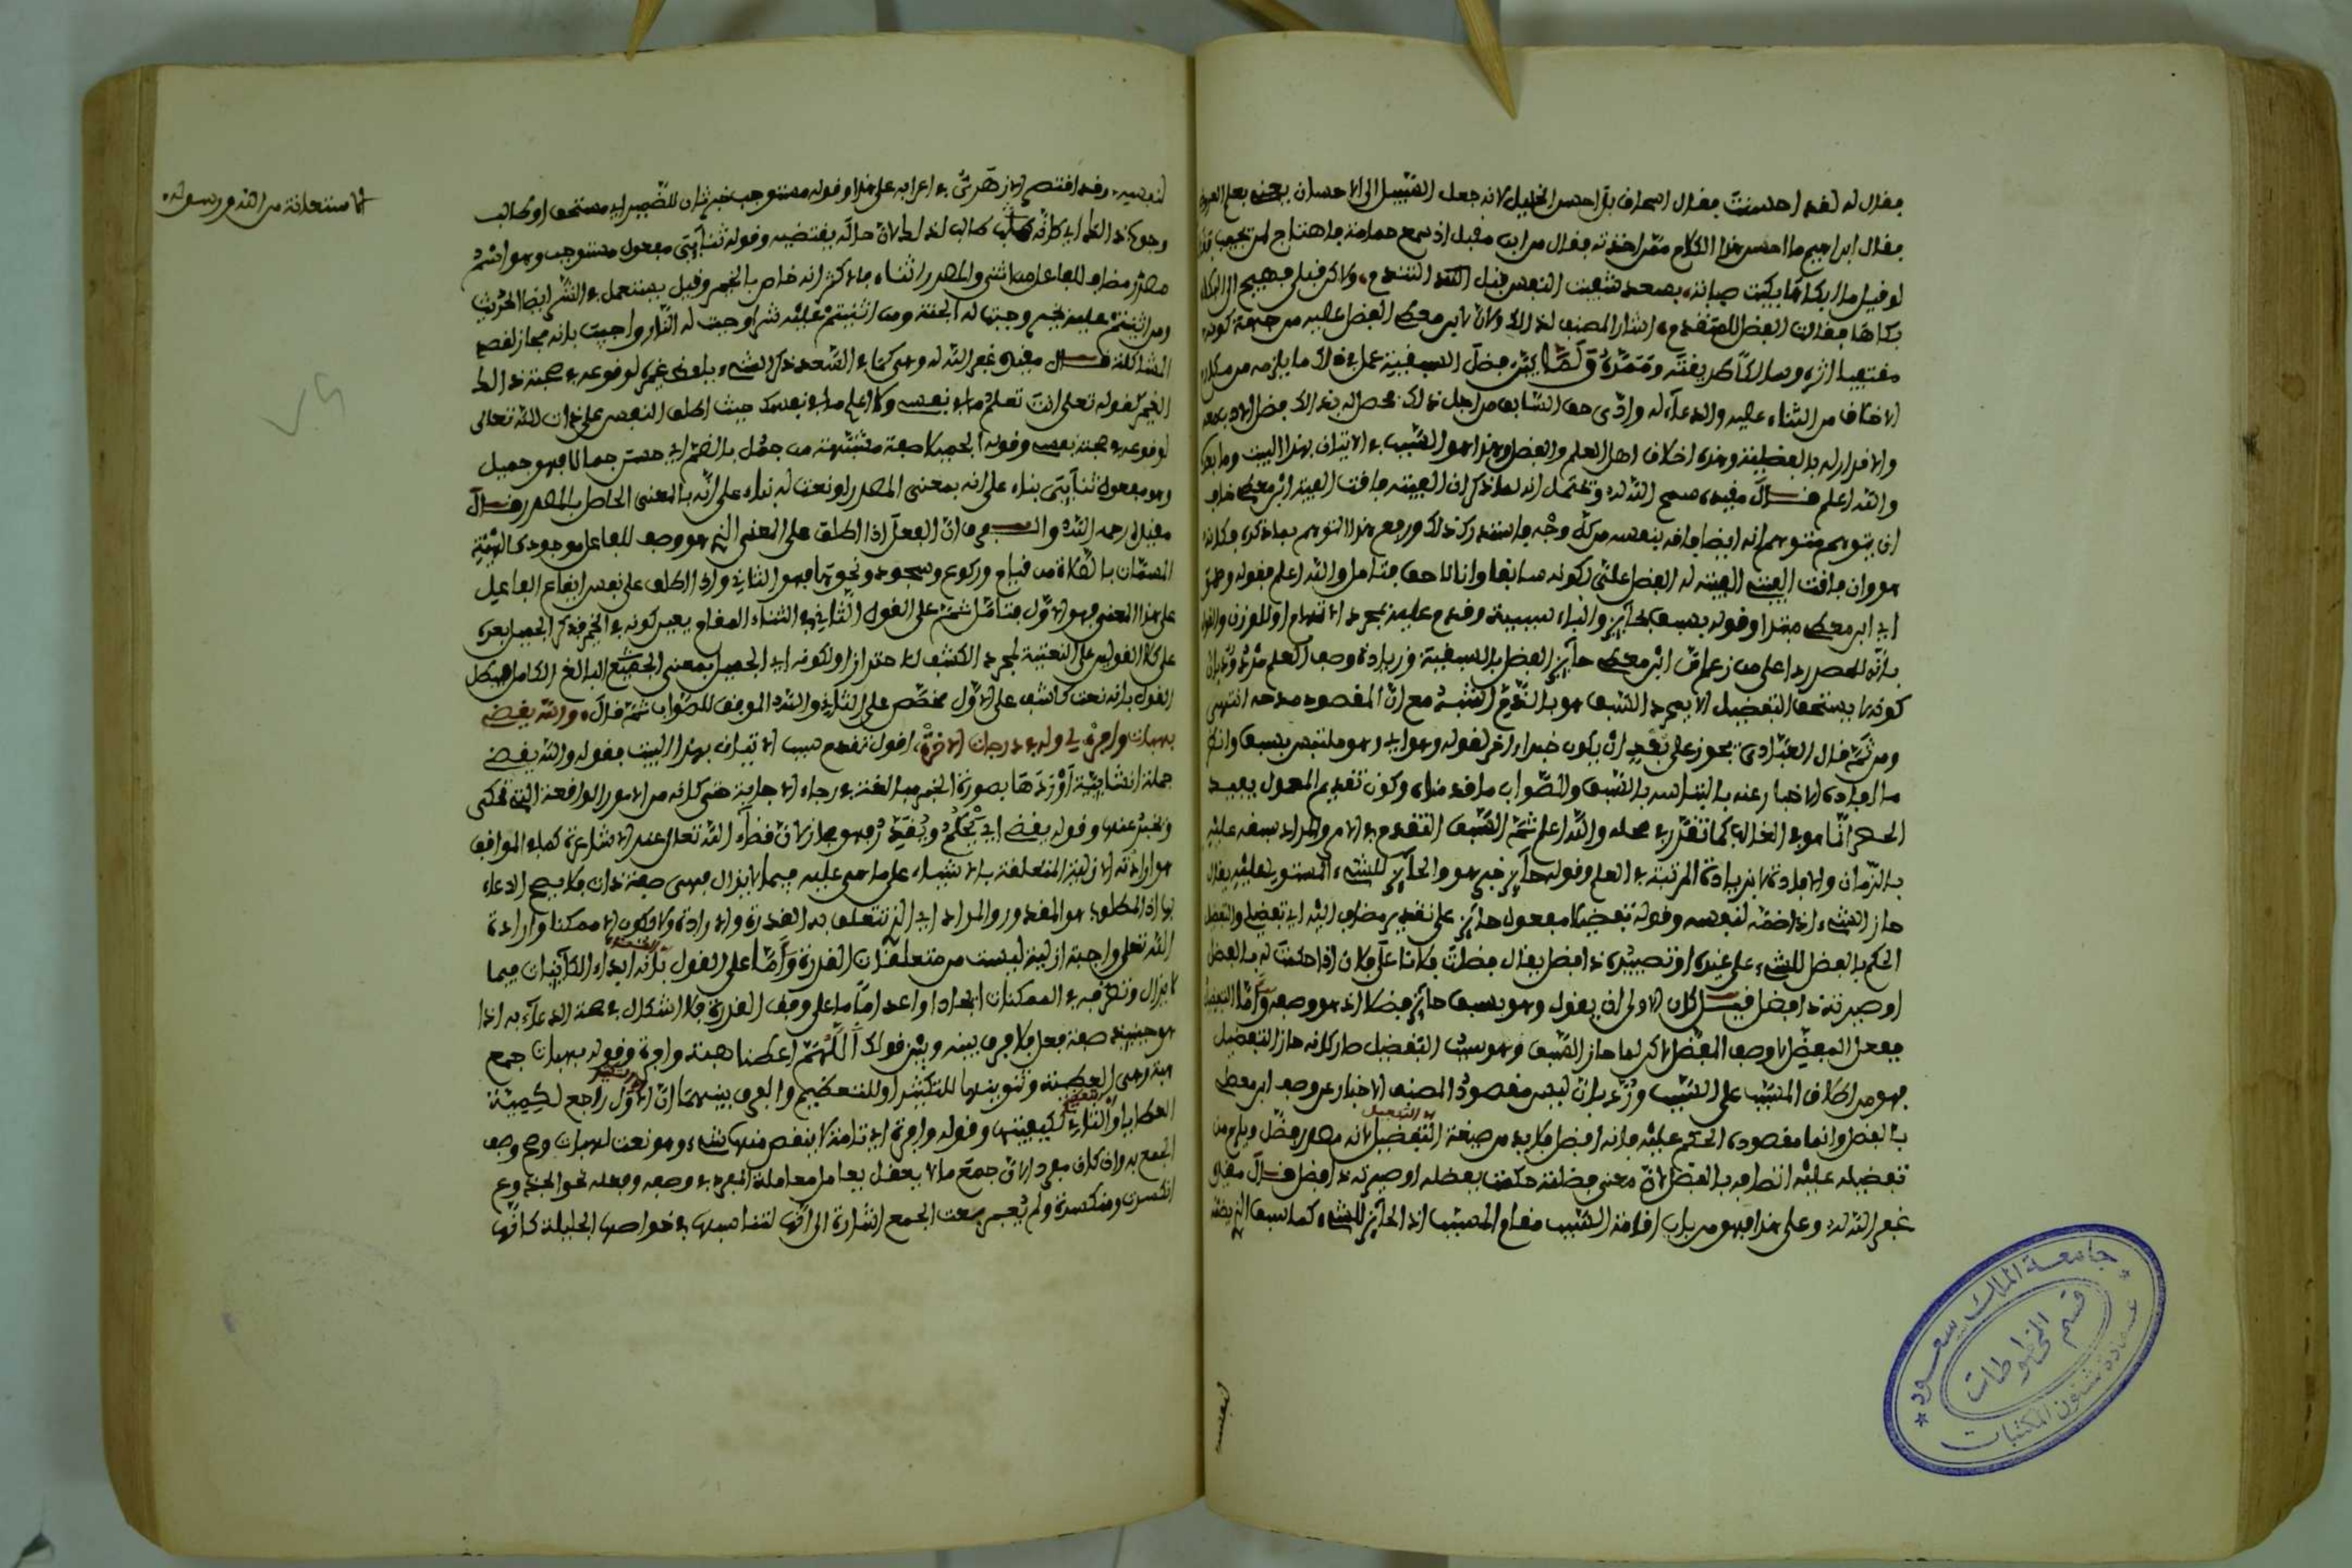 فقال له لقد احسنت فقال اسحاق بل احسن الخليل لانه جعل السبيل الى الاحسان يعني بعلم العروض
فقال ابراهيم ما احسن هذا الكلام فممن اخذته فقال من ابن مقبل اذ سمع حمامة فاهتاج لمن يحب فقال
ولو قبل مبكاها بكيت صبابة، بسعدى شفيت النفس قبل التندم، ولاكن بكت قبلي فهيج لي البكا
بكاها فقلت الفضل للمتقدم، اشار المصنف لذلك ولان لابن معط الفضل عليه من جهة كونه
مقتفيا اثره وسالكا طريقته
الانصاف من الثناء عليه والدعاء له وادى حق السابق من اجل ذلك فحصل له بذلك فضل الادب معه
والاقرار له بالفضيلة وهذه اخلاق اهل العلم والفضل وهذا هو السبب في الاتيان بهذا البيت وما بعده
والله اعلم قال مقيده سمح الله له ويحتمل انه لما ذكر ان الفيته فاقت الفية ابن معط خاف
ان يتوهم متوهم انه ايضا فاقه بنفسه من كل وجه فاستدرك ذلك ورفع هذا التوهم بما ذكره فكانه
هو وان فاقت الفيتي الفيته له الفضل علي لكونه سابقا وانا لاحق فتامل والله اعلم فقوله وهو
اي ابن معط مبتدا وقوله بسبق بحائز والباء سببية وقدم عليه لمجرد الاهتمام او للوزن والقول
بانه للحصر ردا على من زعم ان ابن معط حائز الفضل بالسبقية وزيادة وصف العلم مثلا وردبان
كونه يستحق التفضيل لا بمجرد السبق هو بالذم اشبه مع ان المقصود مدحه انتهى
ومن ثمة قال العبادي يجوز على بعد ان يكون خبرا اخر لقوله وهو اي وهو ملتبس بسبق وانكر
ما افاده الاخبار عنه بالتباسه بالسبق والصواب ما قدمناه وكون تقديم المعمول يفيد
الحصر انما هو في الغالب كما تقرر في محله والله اعلم ثمة السبق التقدم في الامر والمراد سبقه عليه
بالزمان والافادة لا بزيادة المرتبة في العلم وقوله حائز خبر هو والحائز للشيء المستولي عليه يقال
حاز الشيء اذا ضمه لنفسه وقوله تفضيلا مفعول حائز على تقدير مضاف اليه اي تفضيلي والتفضيل
الحكم بالفضل للشيء على غيره او تصييره ذا فضل يقال فضلت فلانا على فلان اذا حكمت له بالفضل
او صيرته ذا فضل قيل كان الاولى ان يقول وهو بسبق حائز فضلا اذ هو وصفه واما التفضيل
ففعل المفضل لا وصف المفضل لاكن لما حاز السبق وهو سبب التفضيل صار كانه حاز التفضيل
فهو من اطلاق المسبب على السبب ورد بان ليس مقصود المصنف الاخبار عن وصف ابن معط
بالفضل وانما مقصوده الحكم عليه بانه افضل فلابد من صيغة التفضيل لانه مصدر فضل ويلزم من
تفضيله عليه اتصافه بالفضل لان معنى فضلته حكمت بفضله او صيرته ذا فضل قال مقيده
غفر الله له وعلى هذا فهو من باب اقامة السبب مقام المسبب اذ الحائز للشيء كما سبق الذي يضمه
لنفسه
لنفسه، وقد اقتصر الازهري في اعرابه على هذا وقوله مستوجب خبر ثان للضمير اي مستحق او طالب
وجوب ذلك اي كانه طالب لذلك لان حاله يقتضيه وقوله ثنائي مفعول مستوجب وهو اسم
مصدر مضاف للفاعل من اثنى والمصدر اثناء والاكثر انه خاص بالخير وقيل يستعمل في الشر ايضا لحديث
ومن اثنيتم عليه بخير وجبت له الجنة ومن اثنيتم عليه شرا وجبت له النار واجيب بانه مجاز لقصد
المشاكلة قال مقيده غفر الله له وهي كما في السعد ذكر الشيء بلفظ غيره لوقوعه في صحبة ذلك
الغير كقوله تعلى انت تعلم ما في نفسي ولا اعلم ما في نفسك حيث اطلق النفس على ذات الله تعالى
لوقوعه في صحبة نفسي وقوله الجميلا صفة مشبهة من جمل بالضم اي حسن جمالا فهو جميل
وهو مفعول ثنائي بناء على انه بمعنى المصدر او نعت له بناء على انه بالمعنى الحاصل بالمصدر قال
مقيده رحمه الله والفرق ان الفعل اذا اطلق على المعنى الذي هو وصف للفاعل موجود كالهيئة
المسمات بالصلاة من قيام وركوع وسجود ونحوها فهو الثاني واذا اطلق على نفس ايقاع الفاعل
على هذا المعنى فهو الاول فتامل ثمة على القول الثاني في الثناء المقام يعين كونه في الخير فذكر الجميل بعده
على كلا القولين على النعتية لمجرد الكشف لا للاحتراز او لكونه اي الجميل بمعنى الجميع البالغ الكامل هيكل
القول بانه نعت كاشف على الاول مخصص على الثاني والله الموفق للصواب ثمة قال، والله يقضي
بهبات وافرة لي وله في درجات الاخرة، اقول تقدم سبب الاتيان بهذا البيت فقوله والله يقضي
جملة انشائية اوردها بصورة الخبر مبالغة في رجاء الاجابة حتى كانه من الامور الواقعة التي تحكى
ويخبر عنها وقوله يقضي اي يحكم ويقدر فهو مجاز لان قضاء الله تعالى عند الاشاعرة كما في المواقف
هو ارادته الازلية المتعلقة بالاشياء على ما هي عليه فيما لا يزال فهي صفة ذات فلا يصح الدعاء
بها اذ المطلوب هو المقدور والمراد اي الذي تتعلق به القدرة والارادة ولا يكون الا ممكنا وارادة
الله تعلى واجبة ازلية ليست من متعلقات القدرة واما على القول بانه ابداء الكائنات فيما
لا يزال وتصرفه في الممكنات ايجادا واعداما على وفق القدرة فلا اشكال في صحة الدعاء به اذا
هو حينئذ صفة فعل فلا فرق بينه وبين قولك اللهم اعطنا هبة وافرة وقوله بهبات جمع
هبة وهي العطية وتنوينها للتكثير او للتعظيم والفرق بينهما ان الاول راجع لكمية
العطايا والثاني لكيفيتها وقوله وافرة اي تامة لا ينقص منها شيء وهو نعت لهبات وصح وصف
الجمع به وان كان مفردا لان جمع ما لا يعقل يعامل معاملة المفرد في وصفه وفعله نحو الجذوع
انكسرت ومنكسرة ولم يعبر بنعت الجمع اشارة الى انها لتناسبها في خواصها الجليلة كانها
جامعة الملك سعود
قسم المخطوطات
عمادة شئون المكتبات